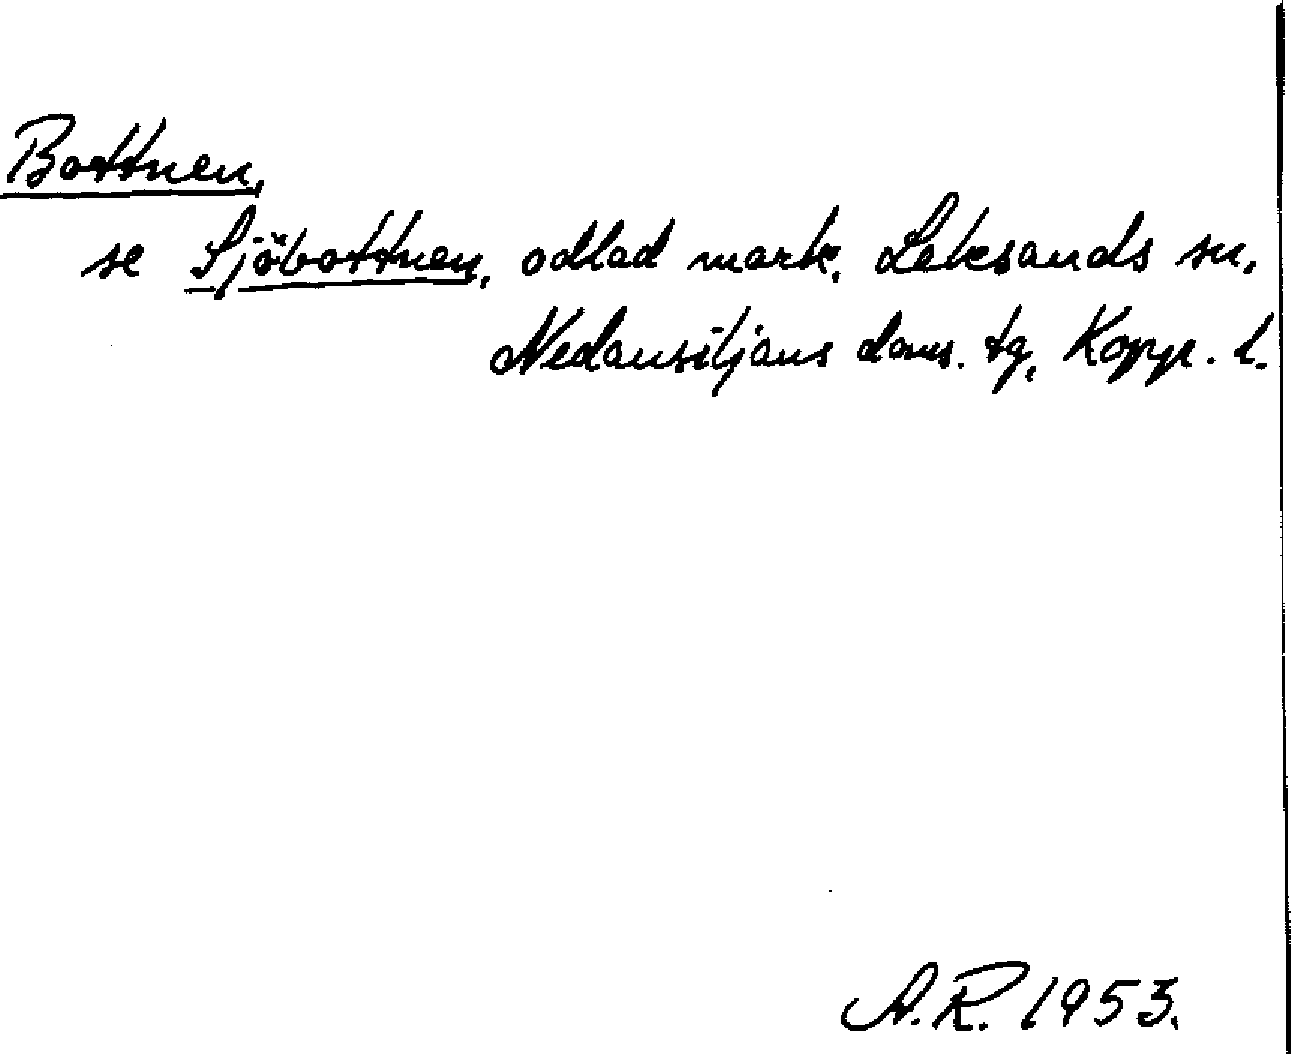 Bottnen,
se Sjöbottnen, odlad mark, Leksands sn,
Nedansiljans doms. tg, Kopp. l.
A.R. 1953.